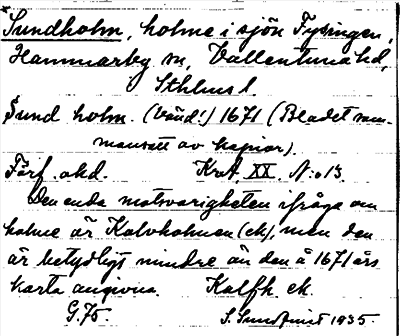 Sundholm, holme i sjön Fysingen,
Hammarby sn, Vallentuna hd,
Sthlms l.
Sund holm. (vänd!) 1671 (Bladet sam-
mansatt av kopior).
Förf. okd. Krt. XX. N:o 13.
Den enda motsvarigheten ifråga om
holme är Kalvholmen (ek), men den
är betydligt mindre än den å 1671 års
karta angivna. Kalfh. ek.
G. 75. S. Sundquist 1935.